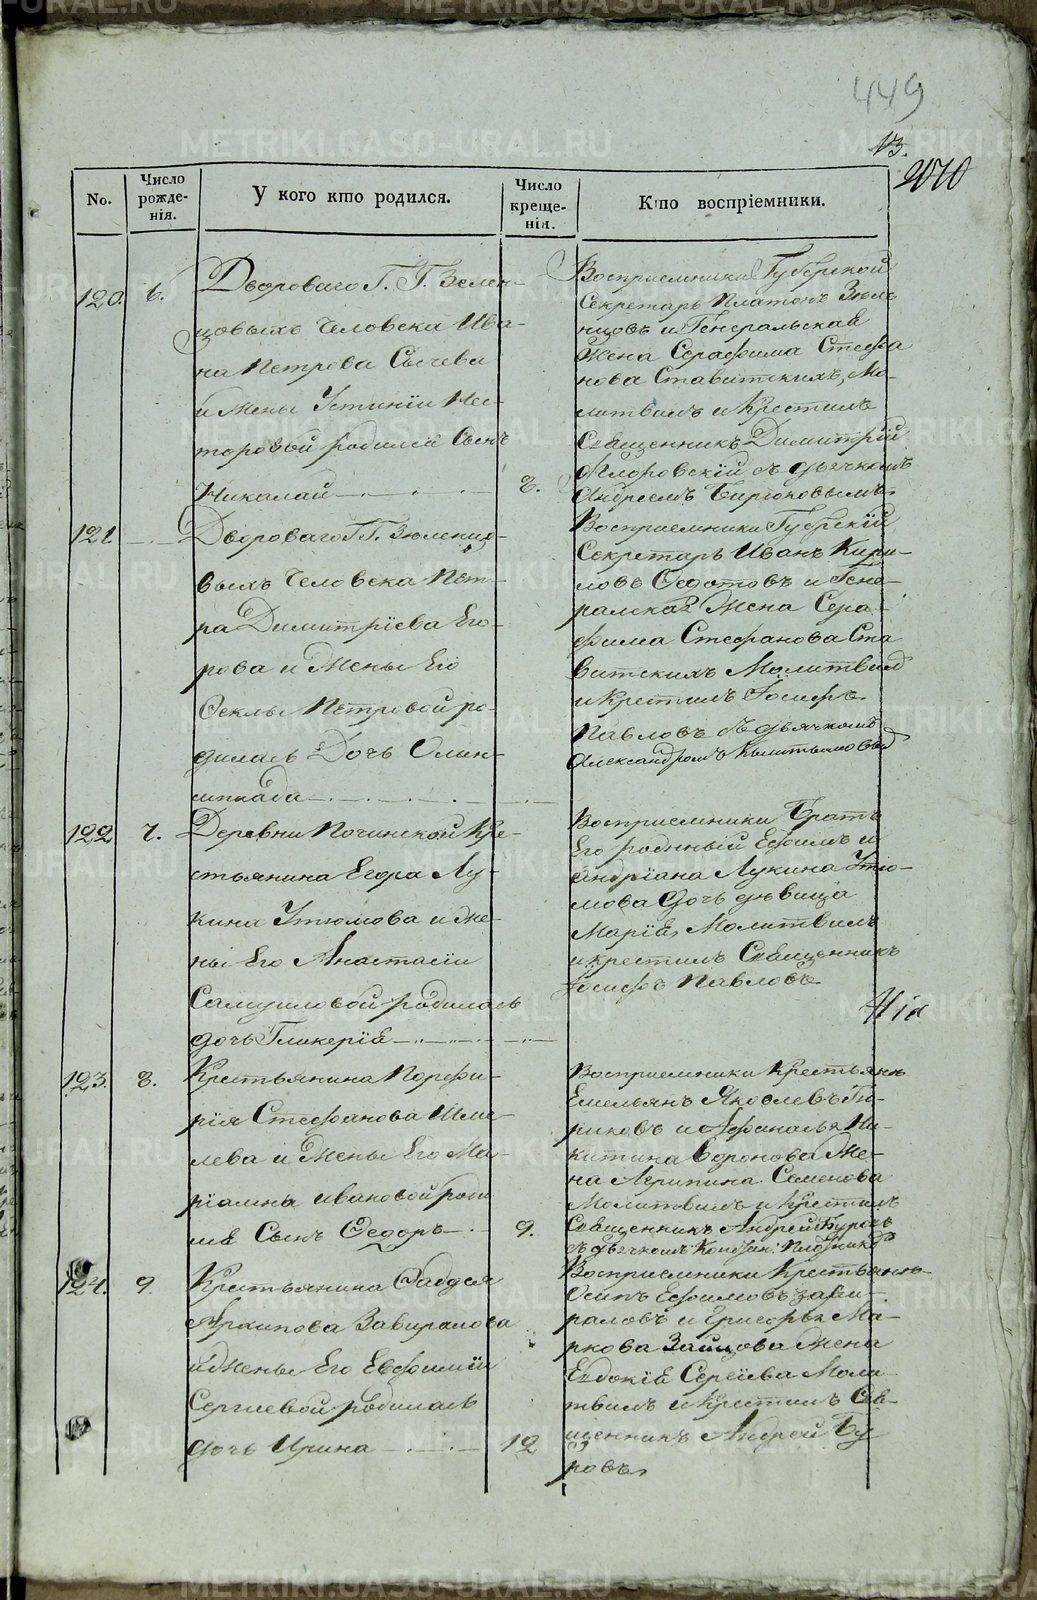 449
13.
2010
No.
Число рожде-нія.
У кого кто родился.
Число креще-нія.
Кто воспріемники.
120. 6.
Двороваго Г. Г. Зелен-
цовыхъ Человека Ива-
на Петрова Сычева
и Жены Устиніи Нес-
торовой родился Сынъ
Николай 8.
Восприемники Губерской
Секретарь Платонъ Зюль
нцовъ и Генеральская
Жена Серафима Стефа
нова Ставитскихъ, Мо-
литвилъ и Крестилъ
Священникъ Димитрій
съ дьячкомъ
Андреемъ Бирюковымъ
121
Двороваго Г.Г. Зюленцо-
выхъ Человека Пет-
ра Димитріева Его-
рова и Жены Его
Феклы Петровой ро-
дилась Дочь Олим-
пиада
Восприемники Губерскій
Секретарь Иванъ Кири-
ловъ Федотовъ и Гене-
ралская Жена Сера-
фима Стефанова Ста
витскихъ Молитвилъ
и Крестилъ Іосифъ
Павловъ съ дьячкомъ
Александромъ
122 7.
Деревни Починской Кре-
стьянина Егора Лу-
кина Утюмова и Же-
ны Его Анастасіи
Самуиловой родилась
дочь Гликерія
Восприемники Братъ
Его родный Ефимъ и
Андріана Лукина Утю-
мова дочь девица
Марія, Молитвилъ
и крестилъ Священникъ
Іосифъ Павловъ
123. 8.
Крестьянина Порфи-
рія Стефанова Шме-
лева и Жены Его Ма-
ріамна Ивановой роди
лся Сынъ Федоръ 9.
Восприемники Крестьянъ
Емельянъ Яковлевъ Би-
риковъ и Афанасья Ни-
китина Воронова Же-
на Агрипина Семенова
Молитвилъ и Крестилъ
Священникъ Андрей Буровъ
съ дьячкомъ
124. 9.
Крестьянина Фаддея
Архипова Завиралова
и Жены Его Евфиміи
Сергиевой родилась
дочь Ирина 12
Восприемники Крестьянъ
Осипъ Ефимовъ Зави-
раловъ и Григорья Ма-
ркова Зайцова Жена
Евдокія Сергіева Моли
твилъ и Крестилъ Свя-
щенникъ Андрей Бу
ровъ
METRIKI.GASO-URAL.RU